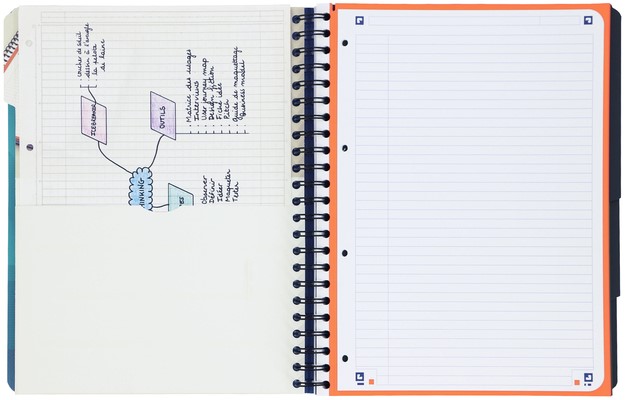 . coucher de soleil
. dessin à l'angle
. la pelote
de laine
ICEBREAKER
OUTILS
. Matrice des usages
. Interviews
. User journey map
. Design fiction
. Fiche idée
. Pitch
. Guide de maquettage
. Business model
THINKING
Observer
Définir
Idéer
Maqueter
Tester